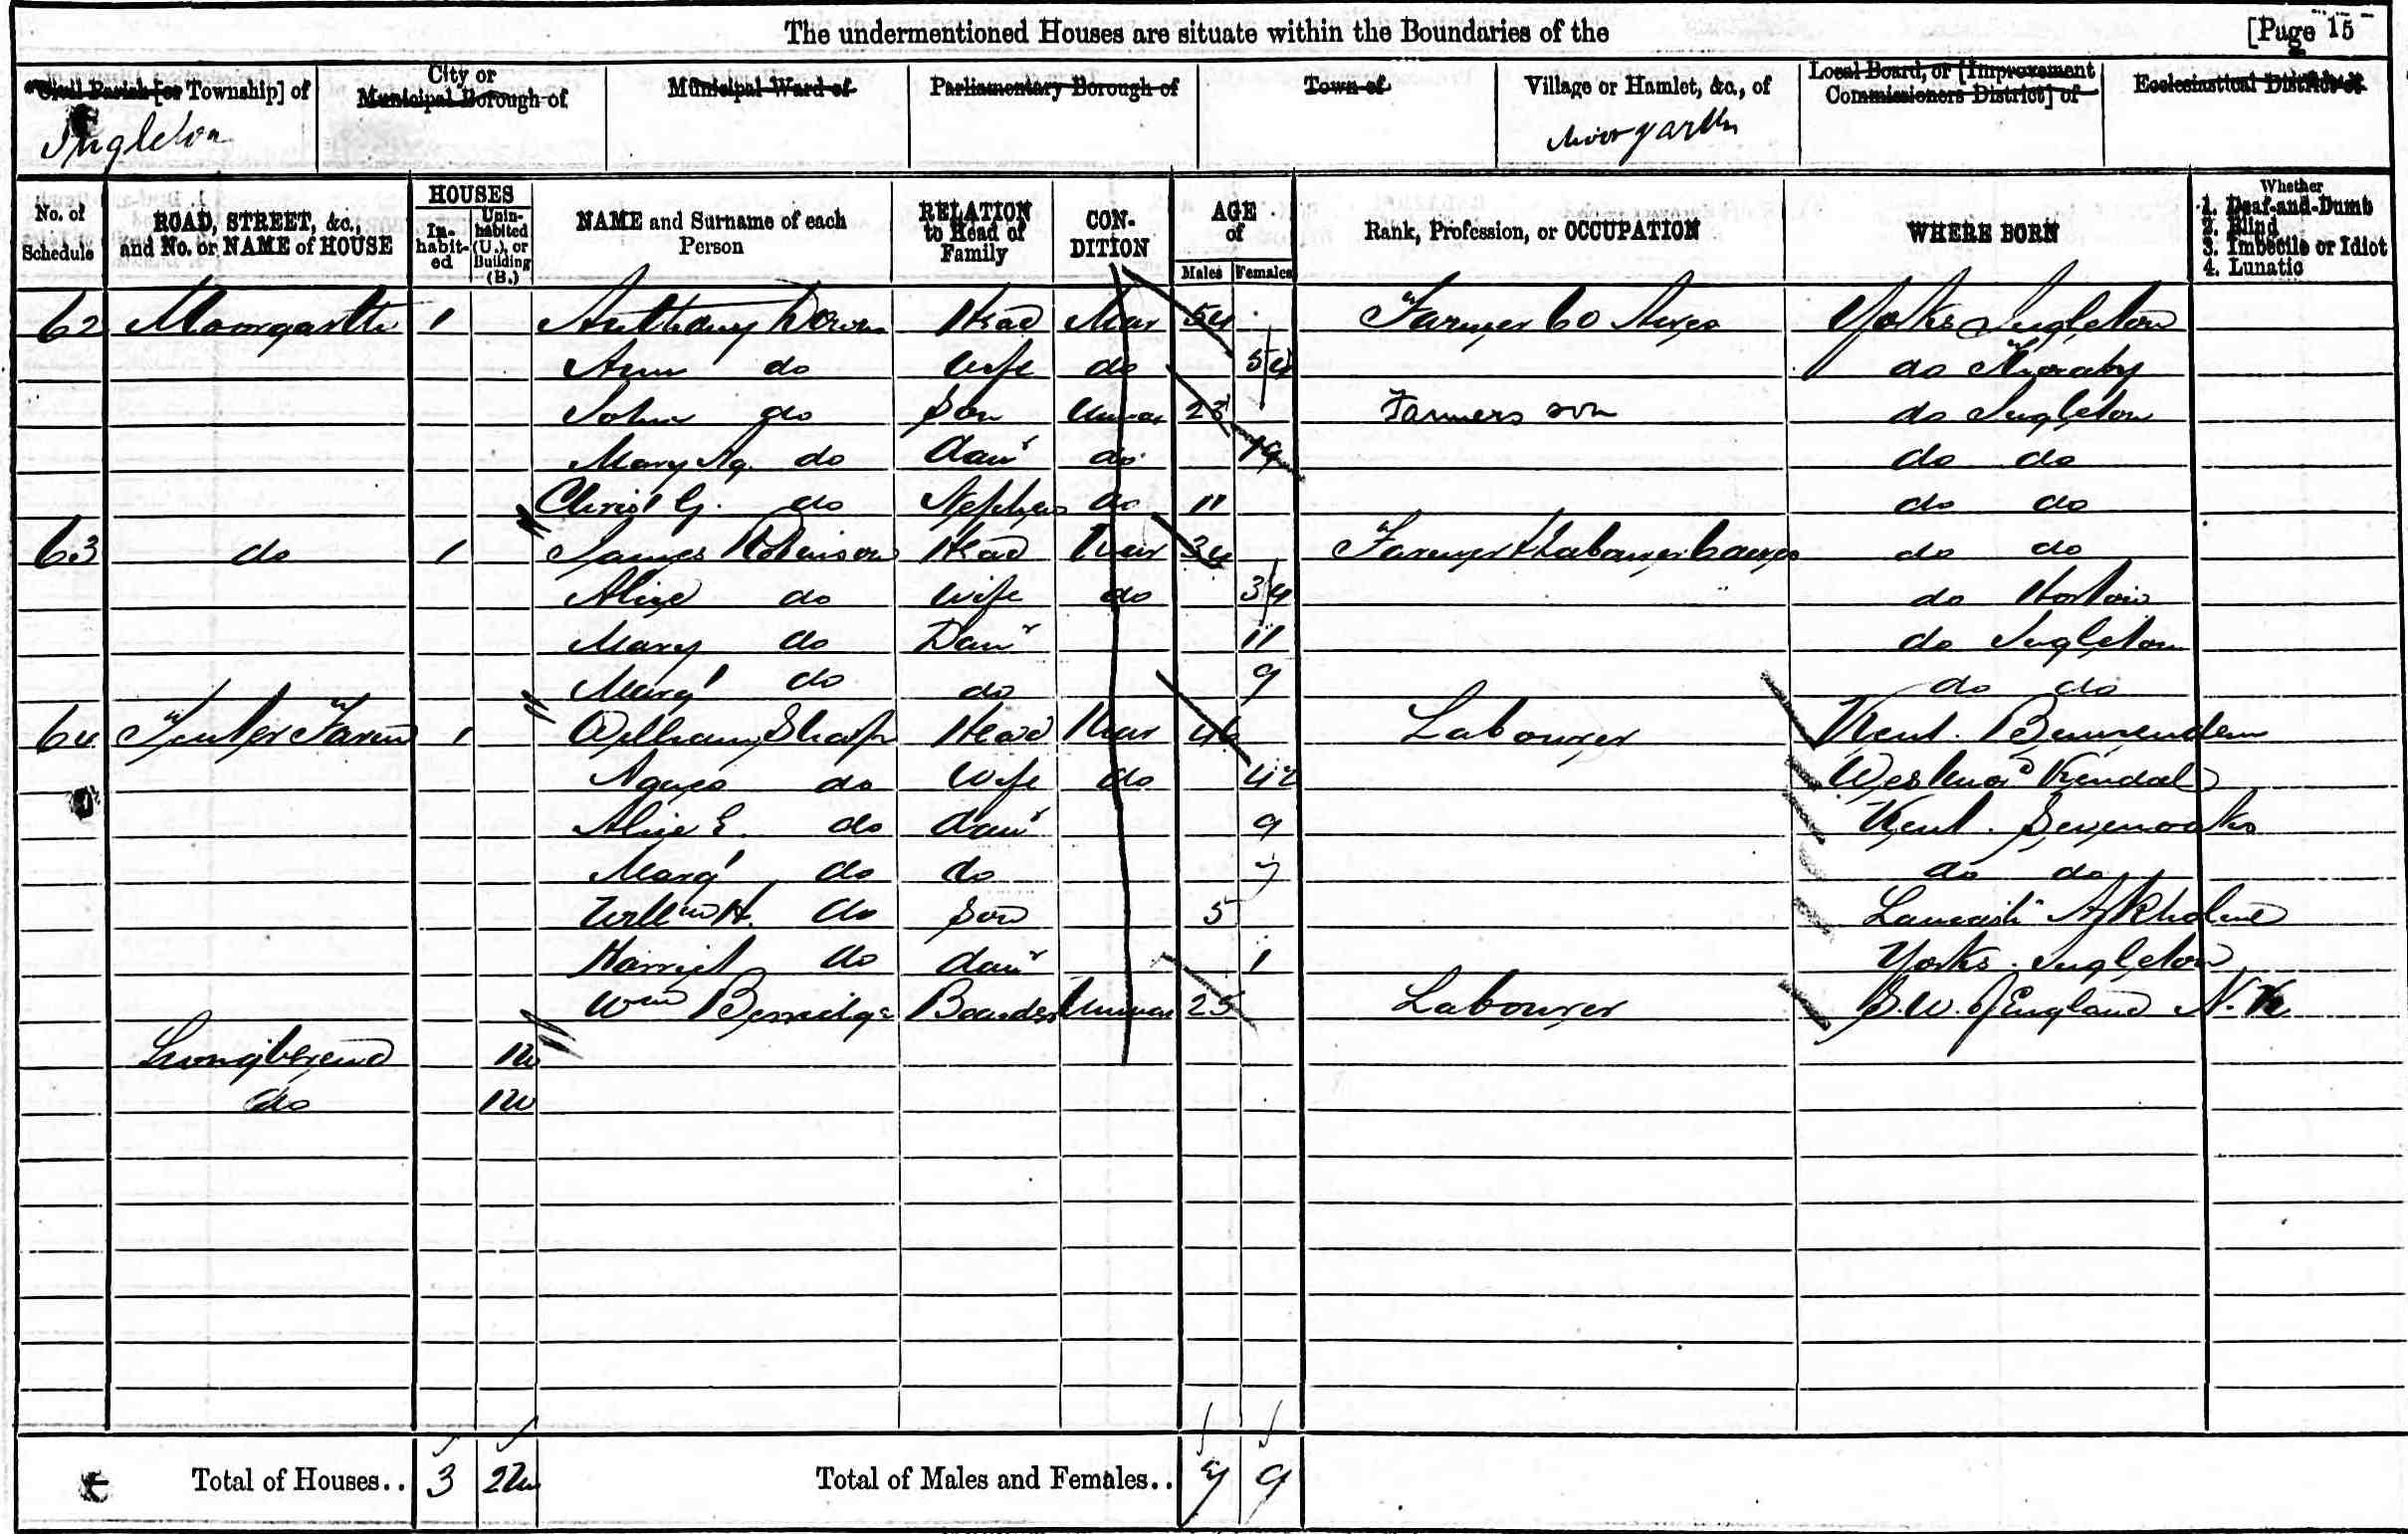 The undermentioned Houses are situate within the Boundaries of the [Page 15
Civil Parish [or Township] of
City or Municipal Borough of
Municipal Ward of
Parliamentary Borough of
Town of
Village or Hamlet, &c., of
Local Board, or [Improvement Commissioners District] of
Ecclesiastical District of
Ingleton
Moorgarth
No. of Schedule
ROAD, STREET, &c., and No. or NAME of HOUSE
HOUSES
In-habit-ed
Unin-habited (U.), or Building (B.)
NAME and Surname of each Person
RELATION to Head of Family
CON-DITION
AGE of
Males Females
Rank, Profession, or OCCUPATION
WHERE BORN
Whether
1. Deaf-and-Dumb
2. Blind
3. Imbecile or Idiot
4. Lunatic
62 Moorgarth 1 Anthony Head Mar 54 Farmer 60 Acres Yorks Ingleton
Ann do Wife do 54 do
John do Son Unmar 23 Farmers son do Ingleton
Mary Ag. do Daur do 19 do do
Christ G. do Nephew do 11 do do
63 do 1 James Robinson Head Mar 34 Farmer & Labourer 6 acres do do
Alice do Wife do 34 do Horton
Mary do Daur 11 do Ingleton
Margt do do 9 do do
64 Farm 1 William Sharp Head Mar 46 Labourer Kent. Benenden
Agnes do Wife do 42 Westmord Kendal
Alice E. do daur 9 Kent. Sevenoaks
Margt do do 7 do do
Willm H. do Son 5 Lancash Arkholme
Harriet do daur 1 Yorks. Ingleton
Wm Berridge Boarder Unmar 25 Labourer S.W. of England N.K
1U
do 1U
Total of Houses.. 3 2U Total of Males and Females.. 7 9